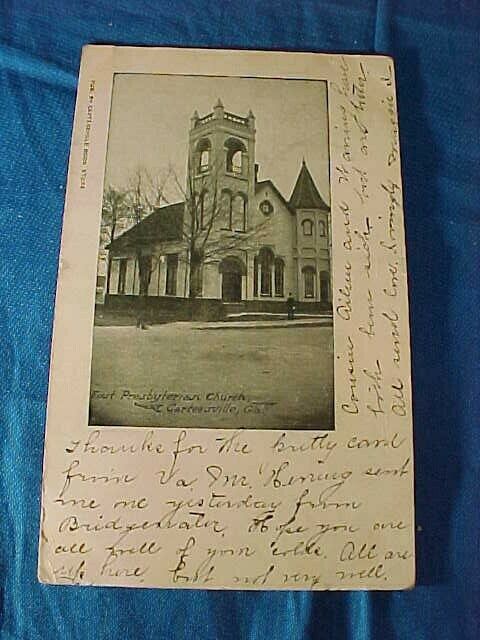 PUB. BY CARTERSVILLE BOOK STORE
First Presbyterian Church,
Cartersville, Ga.
Thanks for the pretty card
from Va. Mr. Herring sent
me one yesterday from
Bridgewater. Hope you are
all well of your colds. All are
up here. but not very well.
Cousin and have
both been sick. but are better.
All send love. Lovingly